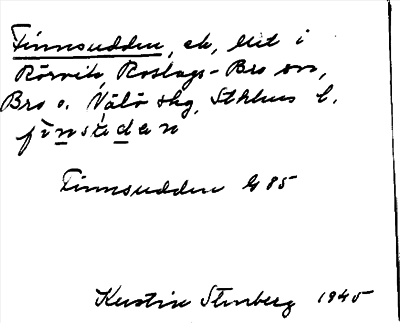 Finnsudden, ek, litet i
Rörvik, Roslags-Bro sn,
Bro o. Väló skg, Sthlms l.
finsuden
Finnsudden G 85
Kerstin Stenberg 1945